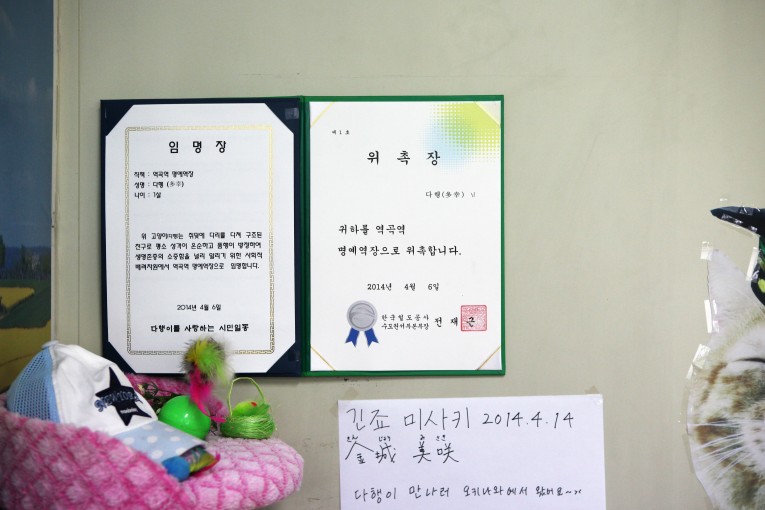 임 명 장
직책 : 역곡역 명예역장
성명 : 다행 (多幸)
나이 : 1살
위 고양이(다행)는 취일에 다리를 다쳐 구조된
친구로 평소 성격이 온순하고 품행이 방정하여
생명존중의 소중함을 널리 알리기 위한 사회적
배려차원에서 역곡역 명예역장으로 임명합니다.
2014년 4월 6일
다행이를 사랑하는 시민일동
제 1 호
위 촉 장
다행(多幸) 님
귀하를 역곡역
명예역장으로 위촉합니다.
2014년 4월 6일
한국철도공사
수도권서부본부장 전 재 근
긴죠 미사키 2014.4.14
金城 美咲
다행이 만나러 오키나와에서 왔어요~